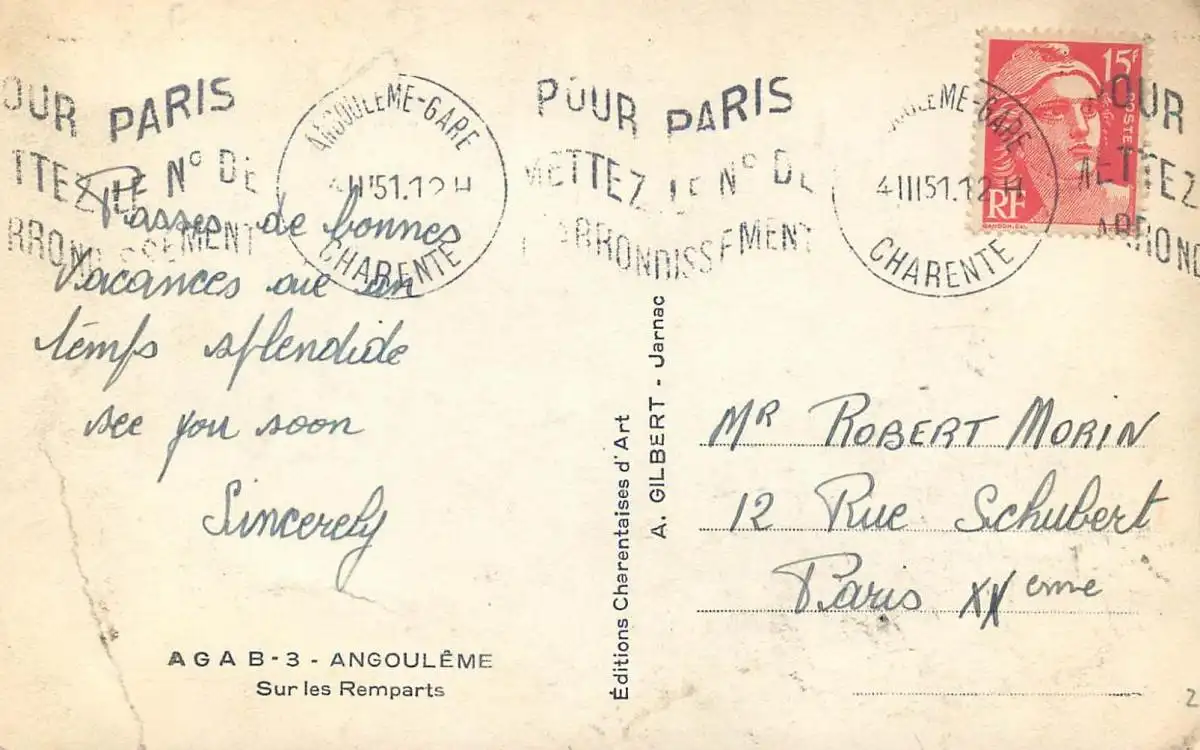 OUR PARIS
TTEZ LE N° DE
RRONDISSEMENT
ANGOULEME-GARE
4 III 51.12 H
CHARENTE
POUR PARIS
METTEZ LE N° DE
ARRONDISSEMENT
OULEME-GARE
4 III 51.12 H
CHARENTE
OUR
METTEZ
ARROND
15F
POSTES
RF
GANDON.DEL
Passes de bonnes
Vacances ave un
temps splendide
see you soon
Sincerely
AGAB-3 - ANGOULÊME
Sur les Remparts
Éditions Charentaises d'Art
A. GILBERT - Jarnac
Mr ROBERT MORIN
12 Rue Schubert
Paris XXeme
2